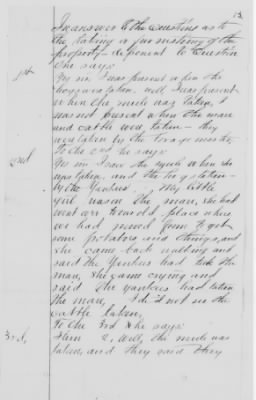 13
In answer to the Questions as to
the taking or furnishing of the
property - deponent to Question
One says
1st
Yes sir I was present when the
hogs was taken. well I was present
when the mule was taken, I
was not present when the mare
and cattle were taken - they
was taken by the forage master,
To the 2nd she says:
2nd
Yes sir I saw the mule when she
was taken, and the hogs taken -
by the Yankees. My little
girl the mare, she had
went over to our old place where
we had moved from to get
some potatoes and things, and
she came back walking and
said the Yankees had took the
mare, she came crying and
said the Yankees had taken
the mare, I did not see the
cattle taken,
To the 3rd she says
3rd,
Item 2, Well, the mule was
taken, and they said they